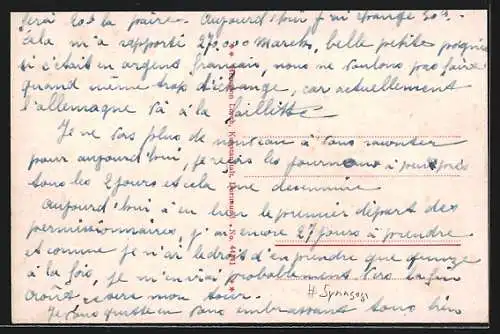 ferai 20s la paire. Aujourd'hui j'ai changé 20s.
Cela m'a rapporté 270,000 Marcks, belle petite poignée
si c'était en argent français, nous ne voulons pas faire
quand même trop d'échange, car actuellement
l'allemagne va à la
Je ne vois plus de nouveau à vous raconter
pour aujourd'hui, je reçois les journeaux à peu près
tous les 2 jours et cela me desennuie
Aujourd'hui à eu lieu le premier départ des
permissionnaires j'ai encore 27 jours à prendre
et comme je n'ai le droit d'en prendre que quinze
à la fois, je n'irai probablement vers la fin
Août, ce sera mon tour.
# Synagog
Je vous quitte en vous embrassant tous bien